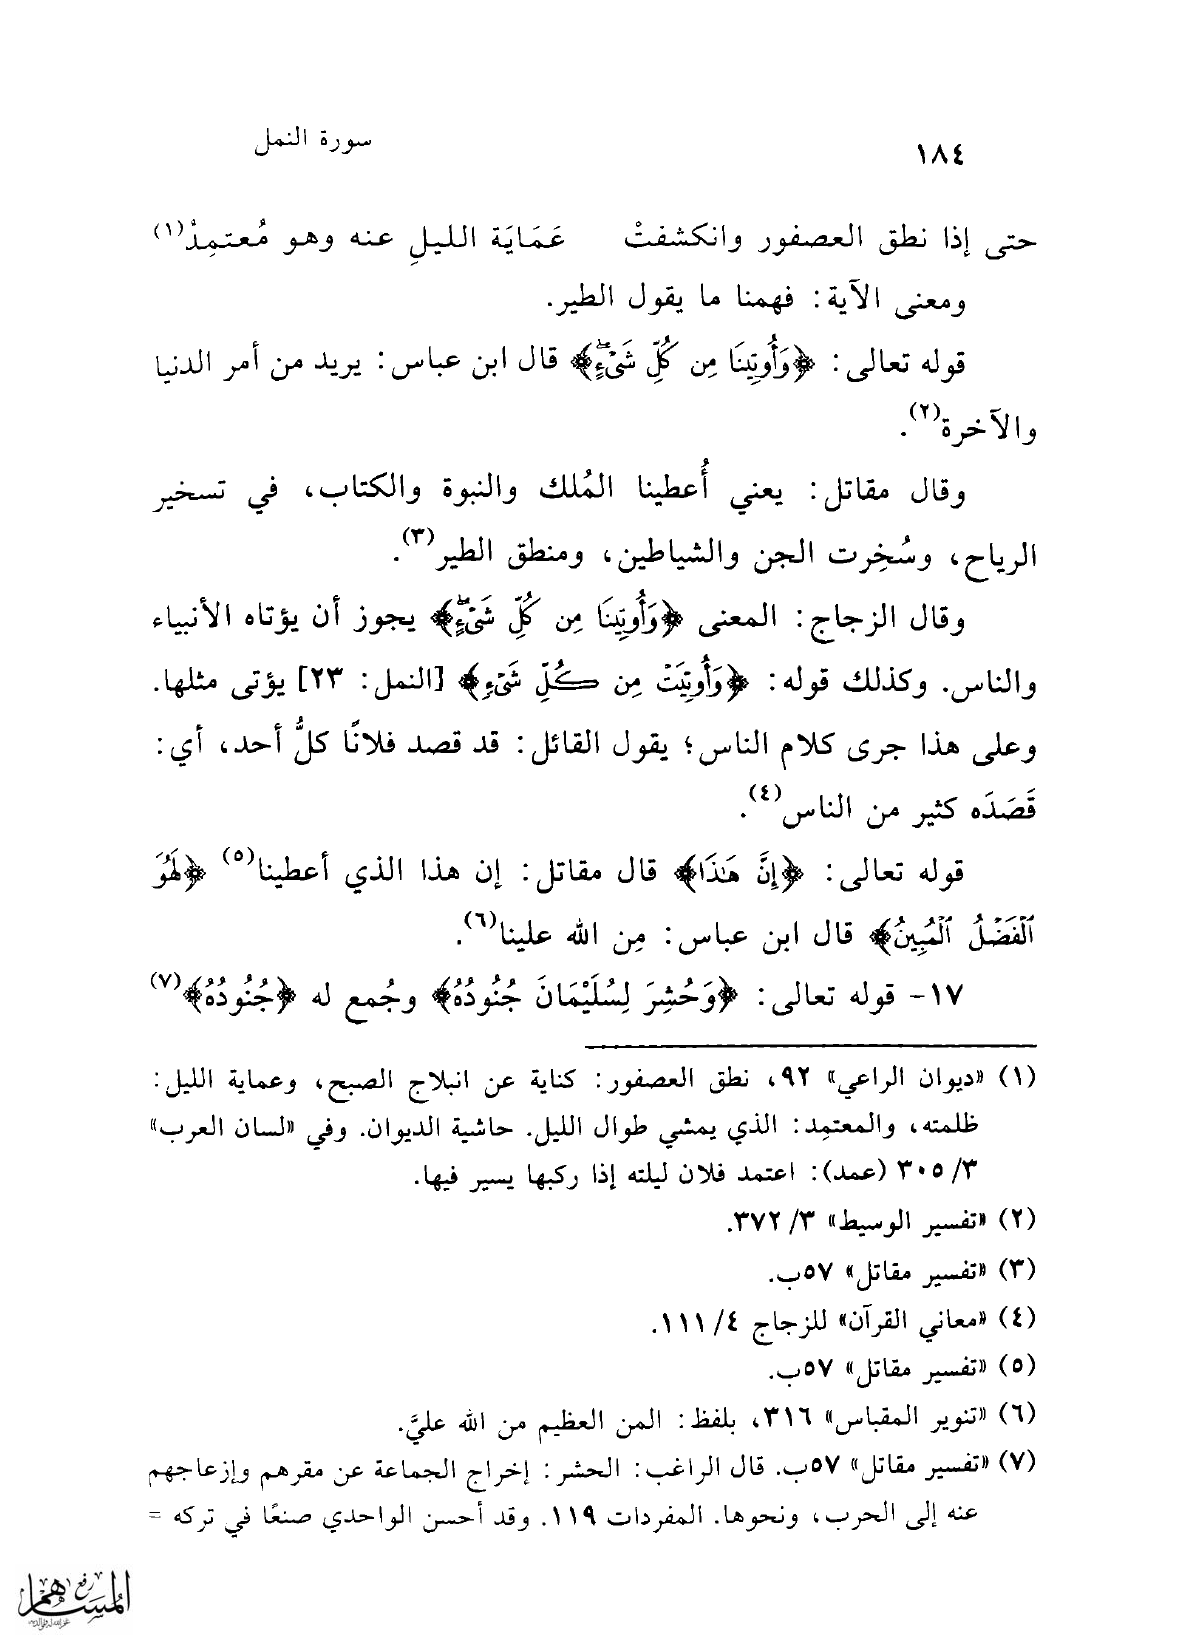 ١٨٤ سورة النمل
حتى إذا نطق العصفور وانكشفتْ عَمَايَة الليلِ عنه وهو مُعتمِدْ(١)
ومعنى الآية: فهمنا ما يقول الطير.
قوله تعالى: ﴿وَأُوتِينَا مِن كُلِّ شَىْءٍۖ﴾ قال ابن عباس: يريد من أمر الدنيا
والآخرة(٢).
وقال مقاتل: يعني أُعطينا المُلك والنبوة والكتاب، في تسخير
الرياح، وسُخِرت الجن والشياطين، ومنطق الطير(٣).
وقال الزجاج: المعنى ﴿وَأُوتِينَا مِن كُلِّ شَىْءٍۖ﴾ يجوز أن يؤتاه الأنبياء
والناس. وكذلك قوله: ﴿وَأُوتِيَتْ مِن كُلِّ شَىْءٍ﴾ [النمل: ٢٣] يؤتى مثلها.
وعلى هذا جرى كلام الناس؛ يقول القائل: قد قصد فلانًا كلُّ أحد، أي:
قَصَدَه كثير من الناس(٤).
قوله تعالى: ﴿إِنَّ هَٰذَا﴾ قال مقاتل: إن هذا الذي أعطينا(٥) ﴿لَهُوَ
ٱلْفَضْلُ ٱلْمُبِينُ﴾ قال ابن عباس: مِن الله علينا(٦).
١٧- قوله تعالى: ﴿وَحُشِرَ لِسُلَيْمَانَ جُنُودُهُ﴾ وجُمع له ﴿جُنُودُهُ﴾(٧)
(١) «ديوان الراعي» ٩٢، نطق العصفور: كناية عن انبلاج الصبح، وعماية الليل:
ظلمته، والمعتمِد: الذي يمشي طوال الليل. حاشية الديوان. وفي «لسان العرب»
٣/ ٣٠٥ (عمد): اعتمد فلان ليلته إذا ركبها يسير فيها.
(٢) «تفسير الوسيط» ٣/ ٣٧٢.
(٣) «تفسير مقاتل» ٥٧ب.
(٤) «معاني القرآن» للزجاج ٤/ ١١١.
(٥) «تفسير مقاتل» ٥٧ب.
(٦) «تنوير المقباس» ٣١٦، بلفظ: المن العظيم من الله عليَّ.
(٧) «تفسير مقاتل» ٥٧ب. قال الراغب: الحشر: إخراج الجماعة عن مقرهم وإزعاجهم
عنه إلى الحرب، ونحوها. المفردات ١١٩. وقد أحسن الواحدي صنعًا في تركه =
رفع
المساهم